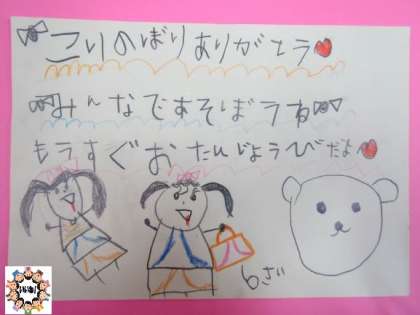 こいのぼりありがとう
みんなであそぼうね
もうすぐおたんじょうびだよ
6さい